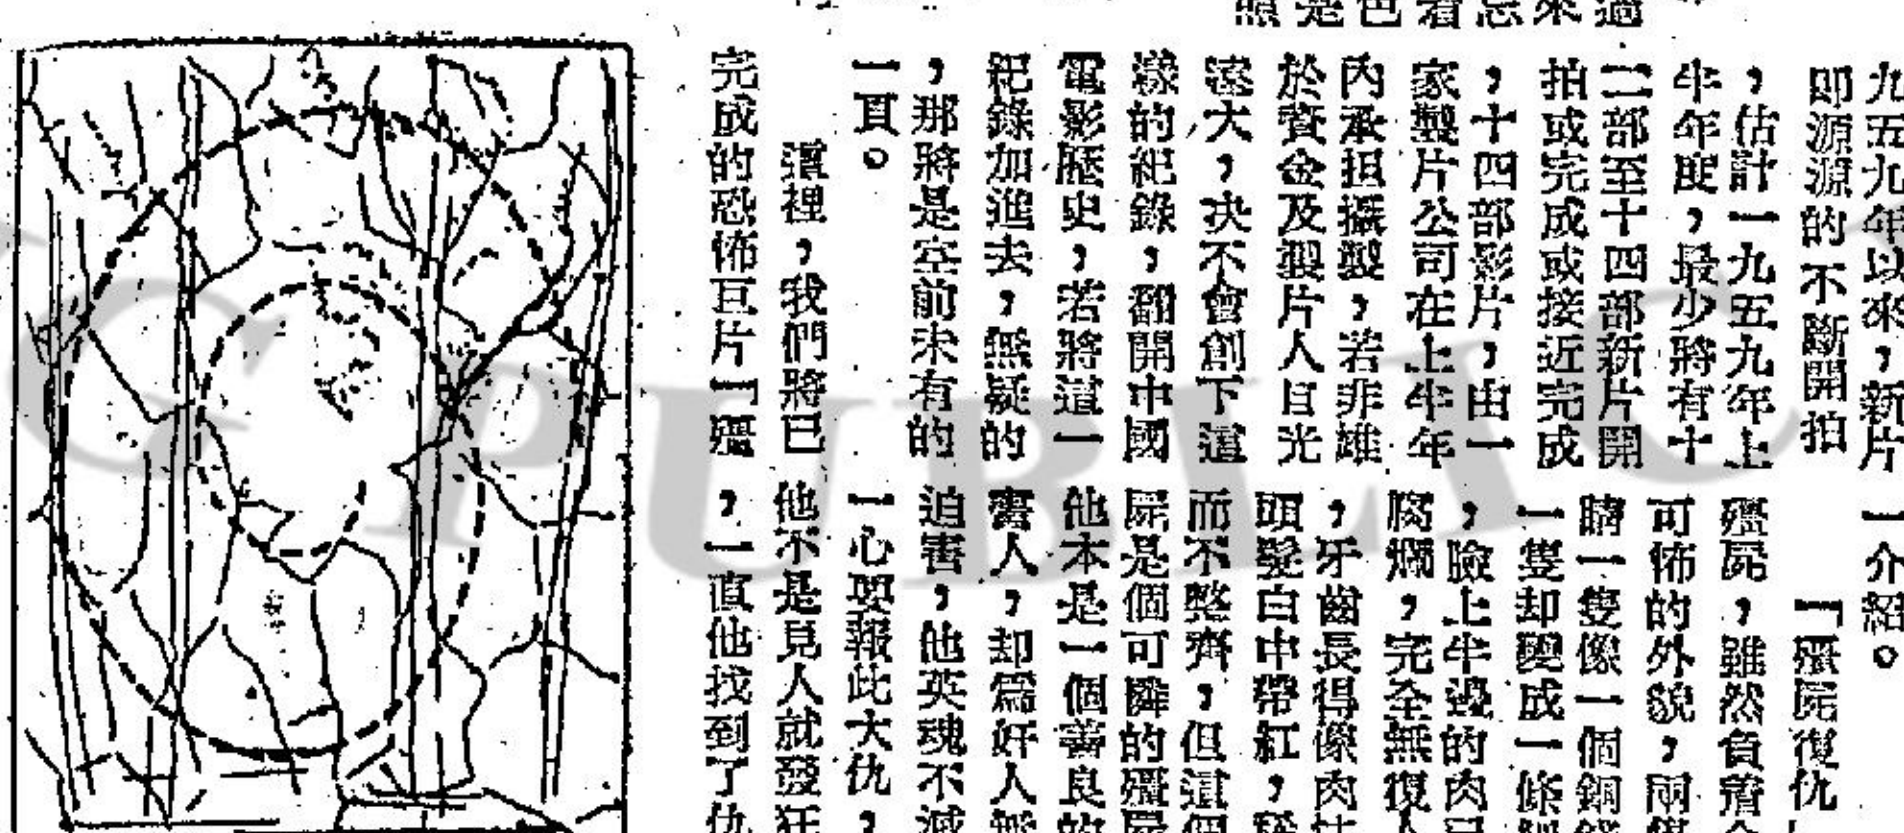 過來忘着色是照
九五九年以來，新片
即源源的不斷開拍
，估計一九五九年上
半年度，最少將有十
二部至十四部新片開
拍或完成或接近完成
，十四部影片，由一
家製片公司在上半年
內承担攝製，若非雄
於資金及製片人目光
遠大，决不會創下這
樣的紀錄，翻開中國
電影歷史，若將這一
紀錄加進去，無疑的
，那將是空前未有的
一頁。
這裡，我們將已
完成的恐怖巨片「殭
一介紹。
「殭屍復仇
殭屍，雖然負着
可怖的外貌，兩
睛一隻像一個銅
一隻却變成一條
，臉上半邊的肉已
腐爛，完全無復人
，牙齒長得像肉
頭髮白中帶紅，
而不整齊，但這個
屍是個可憐的殭屍
他本是一個善良的
害人，却爲奸人
迫害，他英魂不滅
一心要報此大仇，
他不是見人就發狂
，一直他找到了仇
PUBLIC